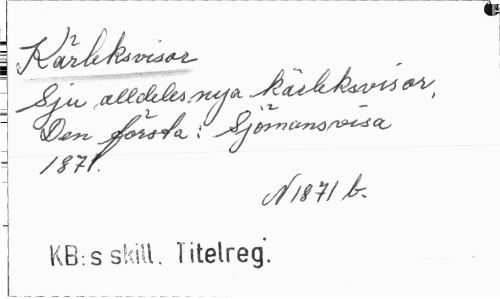 Kärleksvisor
Sju alldeles nya kärleksvisor,
Den första: Sjömansvisa
1871.
N 1871 b.
KB:s skill. Titelreg.